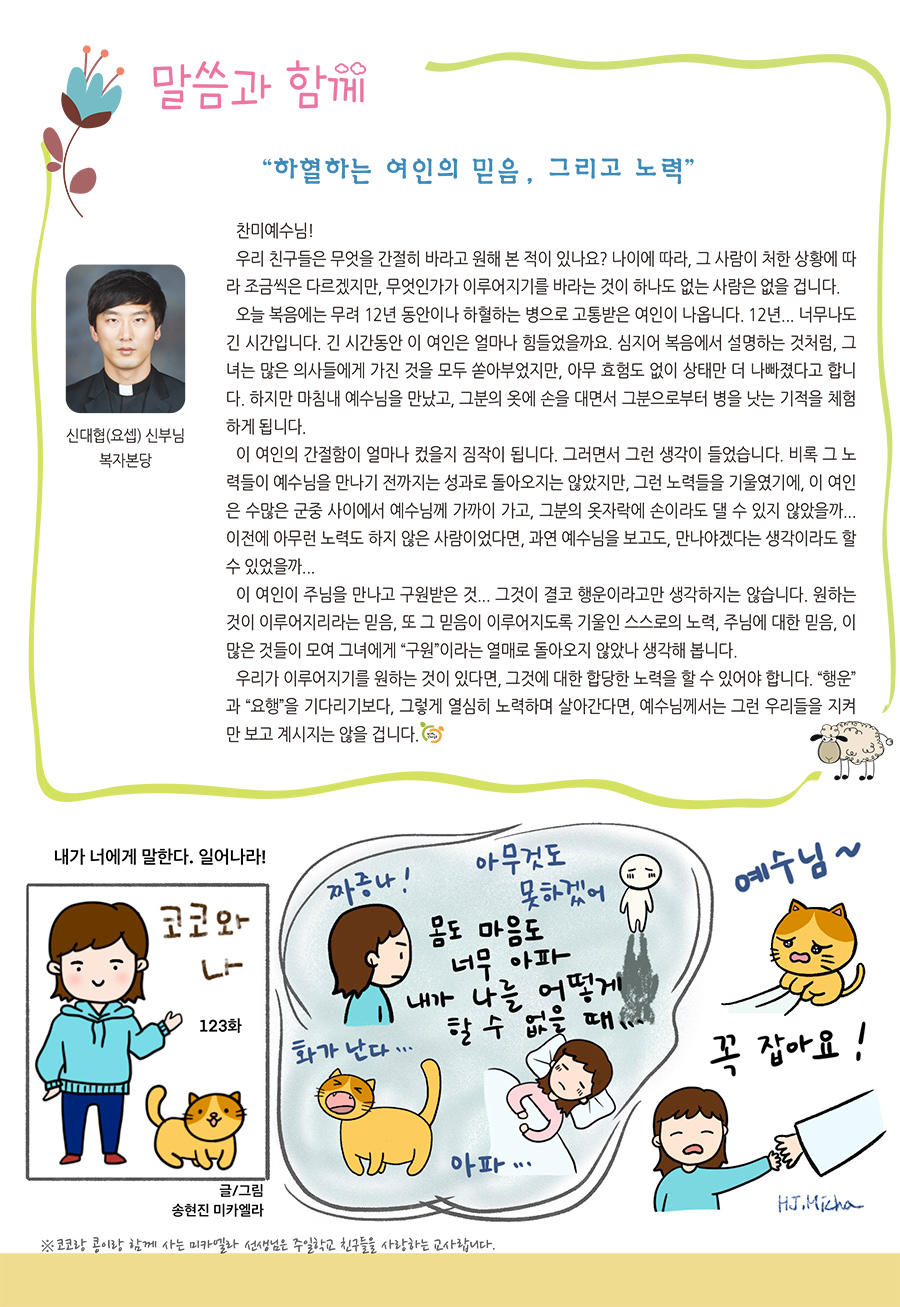 말씀과 함께
“하혈하는 여인의 믿음, 그리고 노력”
찬미예수님!
우리 친구들은 무엇을 간절히 바라고 원해 본 적이 있나요? 나이에 따라, 그 사람이 처한 상황에 따
라 조금씩은 다르겠지만, 무엇인가가 이루어지기를 바라는 것이 하나도 없는 사람은 없을 겁니다.
오늘 복음에는 무려 12년 동안이나 하혈하는 병으로 고통받은 여인이 나옵니다. 12년... 너무나도
긴 시간입니다. 긴 시간동안 이 여인은 얼마나 힘들었을까요. 심지어 복음에서 설명하는 것처럼, 그
녀는 많은 의사들에게 가진 것을 모두 쏟아부었지만, 아무 효험도 없이 상태만 더 나빠졌다고 합니
다. 하지만 마침내 예수님을 만났고, 그분의 옷에 손을 대면서 그분으로부터 병을 낫는 기적을 체험
하게 됩니다.
이 여인의 간절함이 얼마나 컸을지 짐작이 됩니다. 그러면서 그런 생각이 들었습니다. 비록 그 노
력들이 예수님을 만나기 전까지는 성과로 돌아오지는 않았지만, 그런 노력들을 기울였기에, 이 여인
은 수많은 군중 사이에서 예수님께 가까이 가고, 그분의 옷자락에 손이라도 댈 수 있지 않았을까...
이전에 아무런 노력도 하지 않은 사람이었다면, 과연 예수님을 보고도, 만나야겠다는 생각이라도 할
수 있었을까...
이 여인이 주님을 만나고 구원받은 것... 그것이 결코 행운이라고만 생각하지는 않습니다. 원하는
것이 이루어지리라는 믿음, 또 그 믿음이 이루어지도록 기울인 스스로의 노력, 주님에 대한 믿음, 이
많은 것들이 모여 그녀에게 “구원”이라는 열매로 돌아오지 않았나 생각해 봅니다.
우리가 이루어지기를 원하는 것이 있다면, 그것에 대한 합당한 노력을 할 수 있어야 합니다. “행운”
과 “요행”을 기다리기보다, 그렇게 열심히 노력하며 살아간다면, 예수님께서는 그런 우리들을 지켜
만 보고 계시지는 않을 겁니다.
신대협(요셉) 신부님
복자본당
내가 너에게 말한다. 일어나라!
코코와
나
123화
글/그림
송현진 미카엘라
짜증나!
아무것도
못하겠어
몸도 마음도
너무 아파
내가 나를 어떻게
할 수 없을 때...
화가 난다...
아파...
예수님~
꼭 잡아요!
H.J.Micha
※코코랑 콩이랑 함께 사는 미카엘라 선생님은 주일학교 친구들을 사랑하는 교사랍니다.